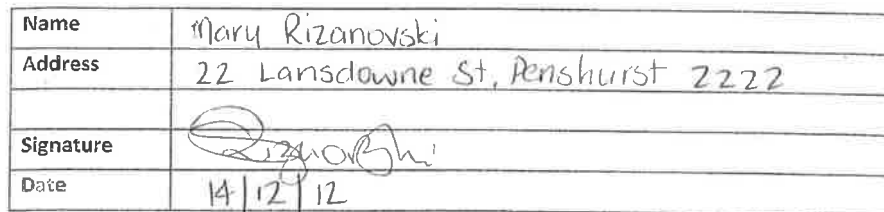 Name Mary Rizanovski
Address 22 Lansdowne St, Penshurst 2222
Signature Rizanovski
Date 14/12/12